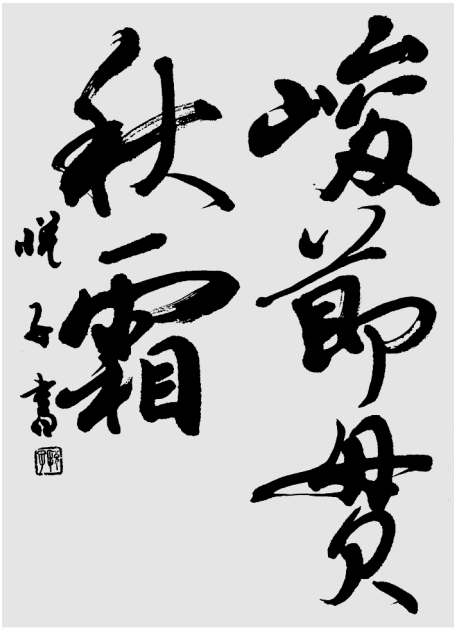 峻節貫
秋霜
悦子書